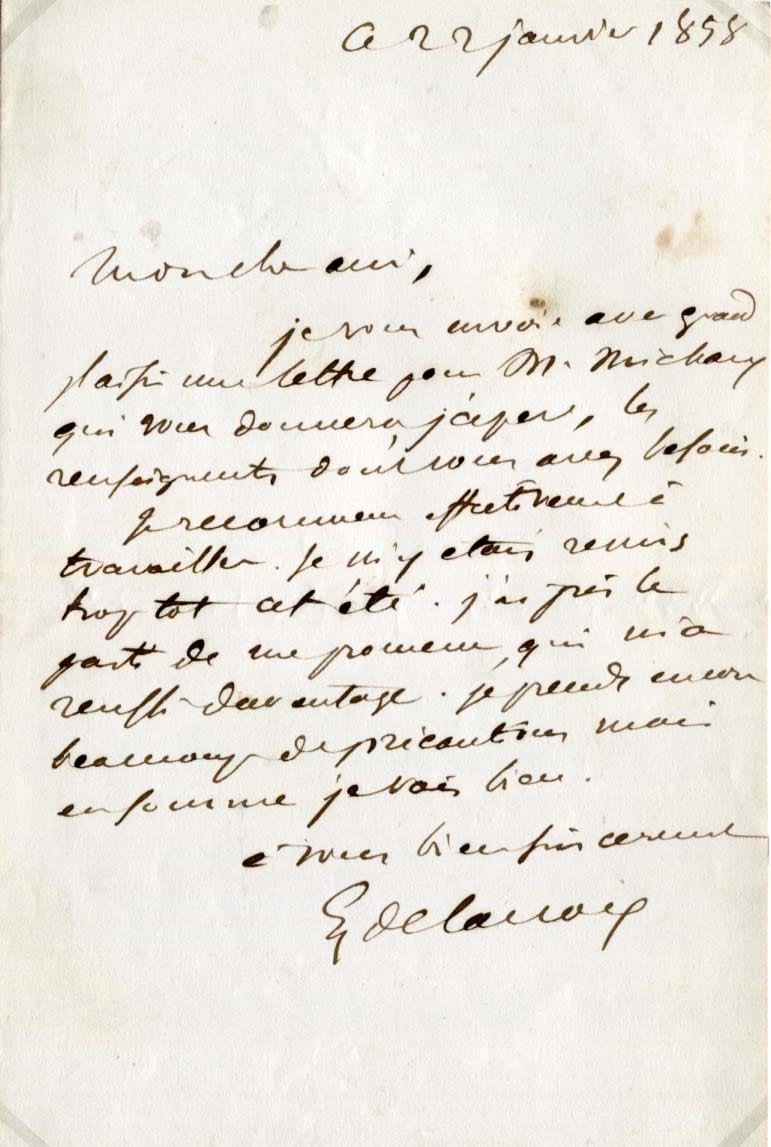 Ce 22 janvier 1858
Mon cher ami,
je vous envoie avec grand
plaisir une lettre pour M.
qui vous donnera j'espère, les
renseignements dont vous avez besoin.
Je recommence effectivement à
travailler. Je m'y étais remis
trop tot cet été. j'ai pris le
parti de me promener qui m'a
reussi davantage. je prends encore
beaucoup de précautions mais
en somme je vais bien.
à vous bien sincerement
Eg Delacroix